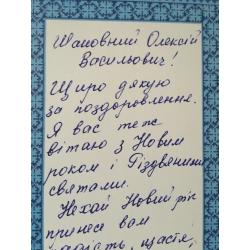 Шановний Олексій
Васильович!
Щиро дякую
за поздоровлення.
Я вас теж
вітаю з Новим
роком і Різдвяними
святами.
Нехай Новий рік
принесе вам
радість, щастя,